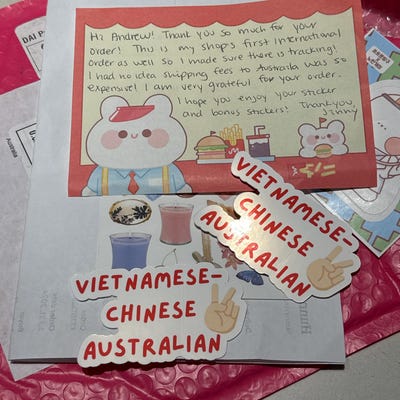 Hi Andrew! Thank you so much for your
order! This is my shop's first international
order as well so I made sure there is tracking!
I had no idea shipping fees to Australia was so
expensive! I am very grateful for your order.
I hope you enjoy your sticker
and bonus stickers! Thank you,
Jinny
VIETNAMESE-
CHINESE
AUSTRALIAN
VIETNAMESE-
CHINESE
AUSTRALIAN